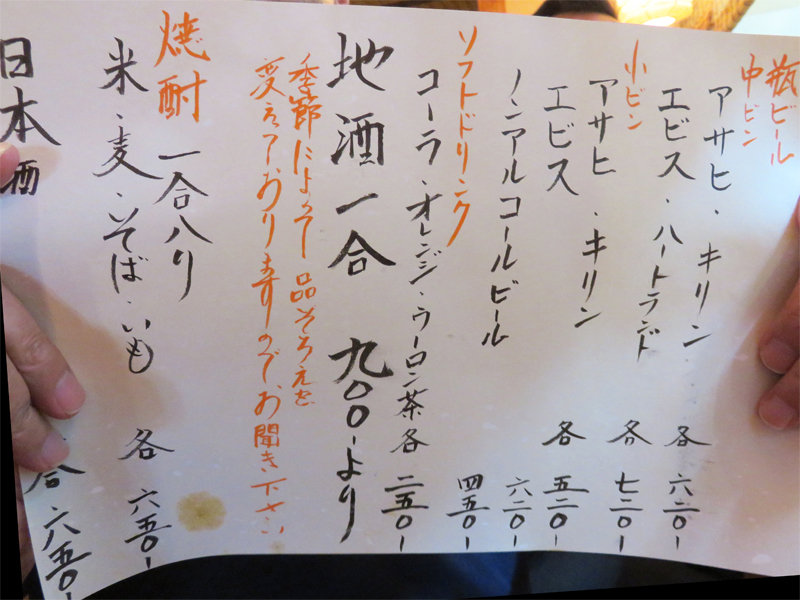 瓶ビール
中ビン
アサヒ・キリン 各 六二〇-
エビス・ハートランド 各 七二〇-
小ビン
アサヒ・キリン 各 五二〇-
エビス 六二〇-
ノンアルコールビール 四五〇-
ソフトドリンク
コーラ・オレンジ・ウーロン茶 各 二五〇-
地酒 一合 九〇〇-より
季節によって品そろえを
変えておりますので、お聞き下さい
焼酎 一合入り
米・麦・そば・いも 各 六五〇-
日本酒 合 六五〇-